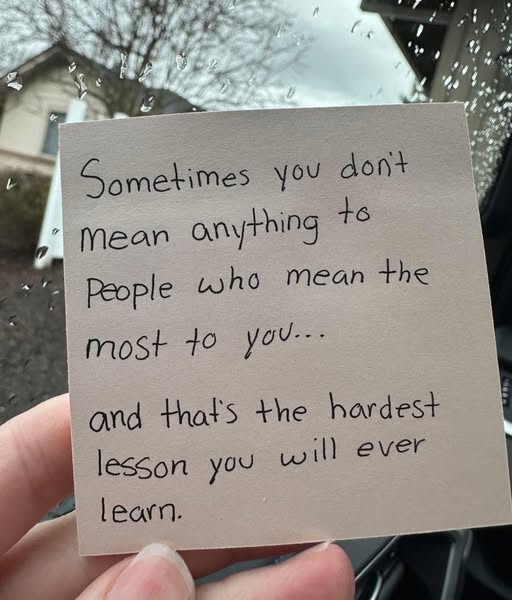 Sometimes you don't
mean anything to
People who mean the
most to you...
and that's the hardest
lesson you will ever
learn.